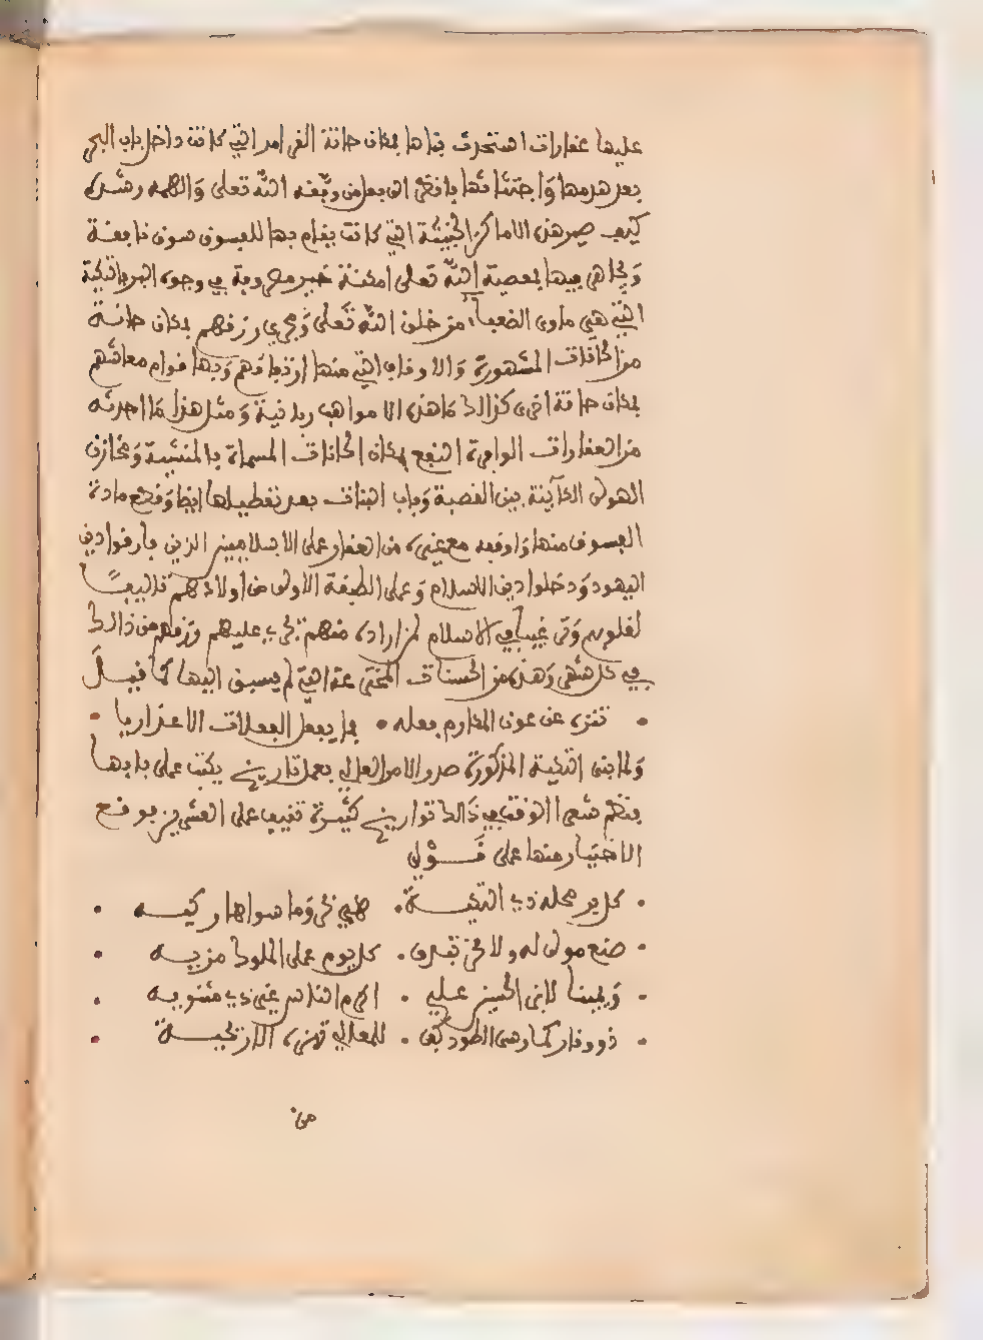 عليها عقارات استخرق بناها بمكان حانة القرامد التي كانت داخل باب البحر
بعد هدمها واجتثاثها بانقض الى بعا من وفقه الله تعلى والهمه رشده
كيف صير هذه الاماكن الخبيثة التي كانت يقام بها للفسوق سوق نافقة
ويجاهر فيها بمعصية الله تعلى امكنة خير مصروفة في وجوه البر والتكية
التي هي ماوى الضعفاء من خلق الله تعلى ومجري رزقهم بمكان حانة
من الحانات المشهورة والاوقاف التي منها ارتفاقهم وبها قوام معاشهم
بمكان حانة اخرى كذالك ما هذه الا مواهب ربانية ومثل هذا ما احدثه
من العقارات الوافرة النفع بمكان الحانات المسماة بالمنشية ومخازن
الهوى الكآينة بين القصبة وباب البنات بعد تعطيلها ايضا وقطع مادة
الفسوق منها واوقفه مع غيره من العقار على الاسلاميين الذين فارقوا دين
اليهود ودخلوا دين الاسلام وعلى الطبقة الاولى من اولادهم تاليفًا
لقلوبهم وترغيبا في الاسلام لمن اراده منهم يجري عليهم رزقهم من ذالك
في كل شهر وهذه من الحسنات المخترعة التي لم يسبق اليها كما قيل
تنزه عن عون المكارم فعله • فما يفعل الفعلات الا عذاريا
ولما بنى التكية المذكورة صدر الامر العالي بعمل تاريخ يكتب على بابها
فنظم شعرا الوقت في ذالك تواريخ كثيرة تنيف على العشرين فوقع
الاختيار منها على قولي
• كل بر محله ذي التكية • هي خير وما سواها ركية •
• صنع مولى له ولا فخر تهدى • كل يوم على الملوك مزية •
• وبمينا لابن الحسين علي • اكرم الناس غير ذي مثنوية •
• ذو وقار كما رسى الطود لكن • للمعالي تهزه الاريحية •
من